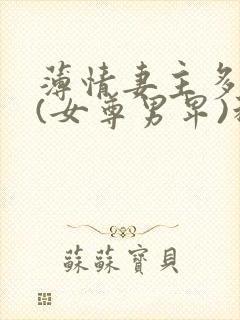 薄情妻主多
(女尊男卑)
蘇蘇寶貝